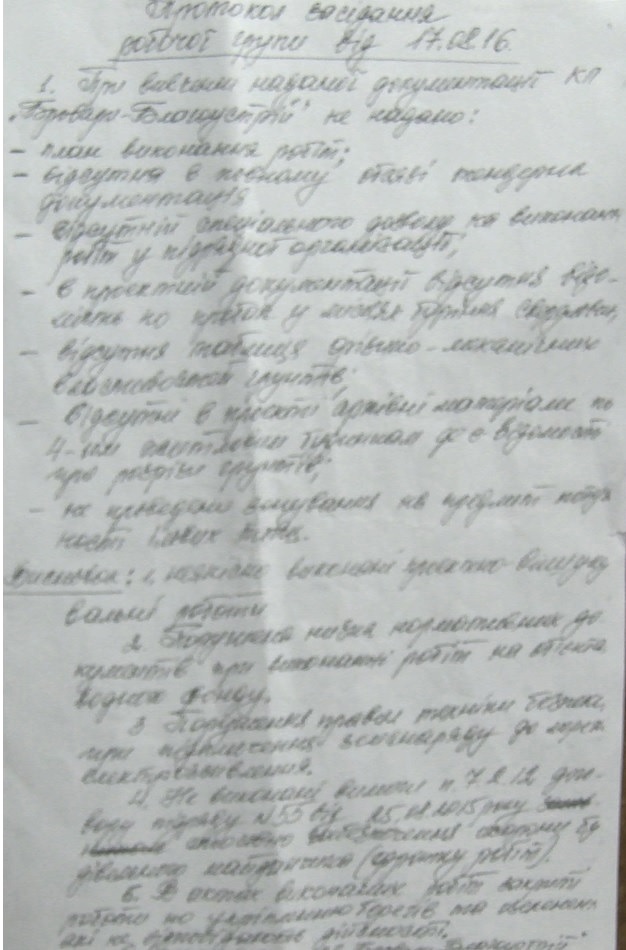 Протокол засідання
робочої групи від 17.08.16.
1. При вивченні наданої документації КП
"Бровари-Благоустрій" не надано:
– план виконання робіт;
– відсутня в повному тендерна
документація
– відсутній спеціального дозволу на виконання
робіт у підрядної організації;
– в проектній документації відсутня відо-
мість по у місцях буріння свердловин,
– відсутня таблиця фізико-механічних
властивостей грунтів;
– відсутні в проекті архівні матеріали по
4-ом де є відомості
про розрізи грунтів;
– не проведено зондування на предмет потуж
ності мулових
Висновок: 1. неякісно виконані проектно-вишуку
вальні роботи
2. Порушена низка нормативних до
кументів при виконанні робіт на об'єкта
водного фонду.
3 Порушення правил техніки безпеки
при підключення земснаряду до мереж
електроживлення.
4. Не виконані вимоги п. 7.2.12 дого-
вору підряду №53 від 25.08.2015 року
забезпечення охорону бу
дівельного майданчика (додатку робіт).
5. В актах виконаних робіт закриті
роботи по укріпленню берегів та виконан
які не відповідають дійсності.